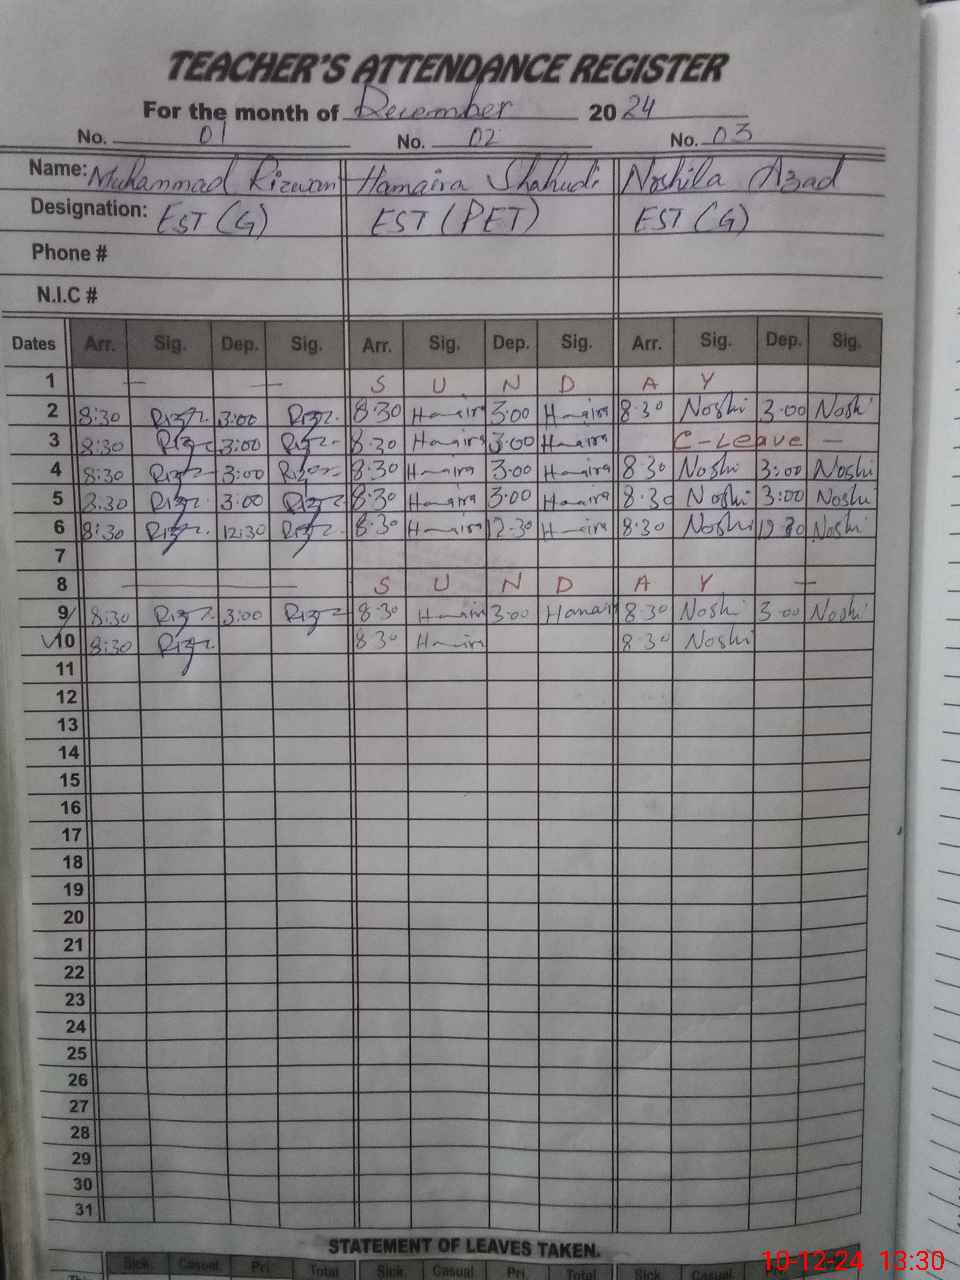 TEACHER'S ATTENDANCE REGISTER
For the month of December 2024
No. 01 No. 02 No. 03
Name: Muhammad Rizwan Hamaira Shahudi Noshila Azad
Designation: EST (G) EST (PET) EST (G)
Phone #
N.I.C #
Dates Arr. Sig. Dep. Sig. Arr. Sig. Dep. Sig. Arr. Sig. Dep. Sig.
1 — — S U N D A Y
2 8:30 3:00 8:30 Hamaira 3:00 Hamaira 8:30 Noshi 3:00 Noshi
3 8:30 3:00 8:30 Hamaira 3:00 Hamaira C-Leave —
4 8:30 3:00 8:30 Hamaira 3:00 Hamaira 8:30 Noshi 3:00 Noshi
5 8:30 3:00 8:30 Hamaira 3:00 Hamaira 8:30 Noshi 3:00 Noshi
6 8:30 12:30 8:30 Hamaira 12:30 Hamaira 8:30 Noshi 12:30 Noshi
7
8 — S U N D A Y —
9 8:30 3:00 8:30 Hamaira 3:00 Hamaira 8:30 Noshi 3:00 Noshi
10 8:30 8:30 Hamaira 8:30 Noshi
11
12
13
14
15
16
17
18
19
20
21
22
23
24
25
26
27
28
29
30
31
STATEMENT OF LEAVES TAKEN.
Sick. Casual Pri. Total Sick. Casual Pri. Total Sick. Casual
10-12-24 13:30